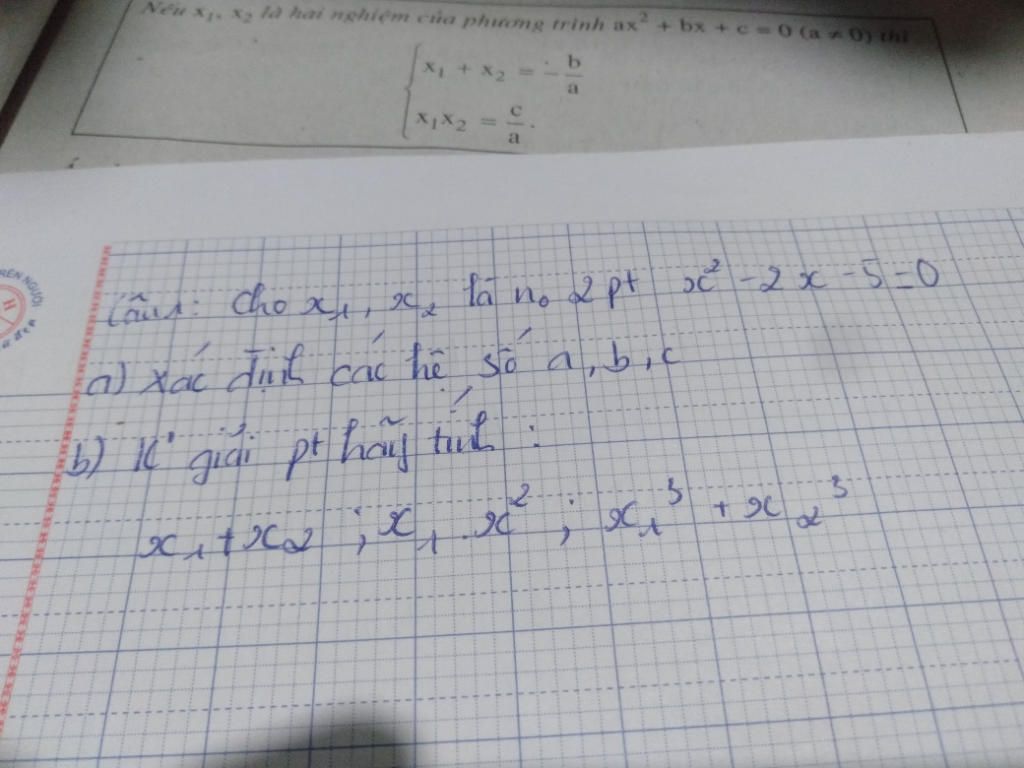 Nếu x₁, x₂ là hai nghiệm của phương trình ax² + bx + c = 0 (a ≠ 0) thì
x₁ + x₂ = -b/a
x₁x₂ = c/a.
RÈN NGƯỜI
H
đẹp
Câu 1: Cho x₁, x₂ là n₀ 2 pt x² - 2x - 5 = 0
a) Xác định các hệ số a, b, c
b) K° giải pt hãy tính :
x₁ + x₂ ; x₁ . x² ; x₁³ + x₂³